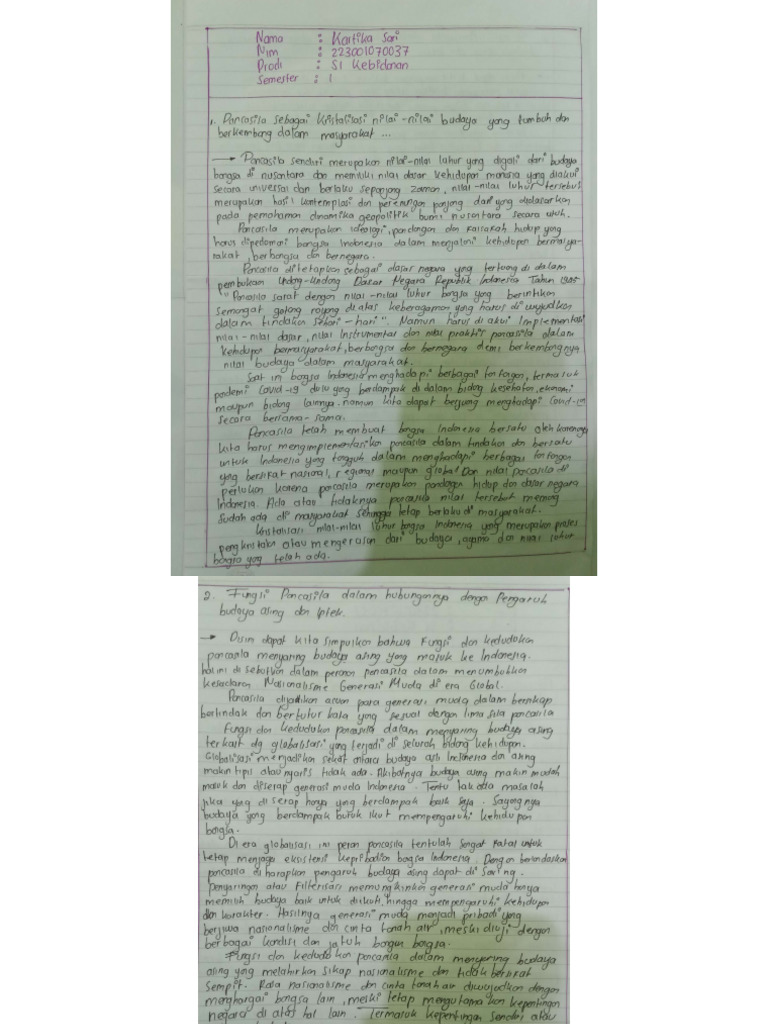 Nama : Kartika Sari
Nim : 223001070037
Prodi : S1 Kebidanan
Semester : 1
1. Pancasila sebagai kristalisasi nilai-nilai budaya yang tumbuh dan
berkembang dalam masyarakat ...
→ Pancasila sendiri merupakan nilai-nilai luhur yang digali dari budaya
bangsa di nusantara dan memiliki nilai dasar kehidupan manusia yang diakui
secara universal dan berlaku sepanjang zaman, nilai-nilai luhur tersebut
merupakan hasil kontemplasi dan perenungan panjang dari yang didasarkan
pada pemahaman dinamika geopolitik bumi nusantara secara utuh.
Pancasila merupakan ideologi, pandangan dan falsafah hidup yang
harus dipedomani bangsa Indonesia dalam menjalani kehidupan bermasya-
rakat, berbangsa dan bernegara.
Pancasila ditetapkan sebagai dasar negara yang tertuang di dalam
pembukaan Undang-Undang Dasar Negara Republik Indonesia Tahun 1945
"Pancasila sarat dengan nilai-nilai luhur bangsa yang berintikan
semangat gotong royong di atas keberagaman yang harus di wujudkan
dalam tindakan sehari-hari". Namun harus di akui implementasi
nilai-nilai dasar, nilai instrumental dan nilai praktis pancasila dalam
kehidupan bermasyarakat, berbangsa dan bernegara demi berkembangnya
nilai budaya dalam masyarakat.
Saat ini bangsa Indonesia menghadapi berbagai tantangan, termasuk
pandemi Covid-19 dulu yang berdampak di dalam bidang kesehatan, ekonomi
maupun bidang lainnya. namun kita dapat berjuang menghadapi Covid-19
secara bersama-sama.
Pancasila telah membuat bangsa Indonesia bersatu oleh karenanya
kita harus mengimplementasikan pancasila dalam tindakan dan bersatu
untuk Indonesia yang tangguh dalam menghadapi berbagai tantangan
yang bersifat nasional, regional maupun global. Dan nilai pancasila di
perlukan karena pancasila merupakan pandangan hidup dan dasar negara
Indonesia. Ada atau tidaknya pancasila nilai tersebut memang
sudah ada di masyarakat sehingga tetap berlaku di masyarakat.
Kristalisasi nilai-nilai luhur bangsa Indonesia yang merupakan proses
pengkristalan atau mengerasan dari budaya, agama dan nilai luhur
bangsa yang telah ada.
2. Fungsi Pancasila dalam hubungannya dengan Pengaruh
budaya asing dan Iptek.
→ Disini dapat kita simpulkan bahwa Fungsi dan kedudukan
pancasila menyaring budaya asing yang masuk ke Indonesia.
hal ini di sebutkan dalam peranan pancasila dalam menumbuhkan
kesadaran Nasionalisme Generasi Muda di era Global.
Pancasila dijadikan acuan para generasi muda dalam bersikap
bertindak dan bertutur kata yang sesuai dengan lima sila pancasila
Fungsi dan kedudukan pancasila dalam menyaring budaya asing
terkait dg globalisasi yang terjadi di seluruh bidang kehidupan.
Globalisasi menjadikan sekat antara budaya asli Indonesia dan asing
makin tipis atau nyaris tidak ada. Akibatnya budaya asing makin mudah
masuk dan diserap generasi muda Indonesia. Tentu tak ada masalah
jika yang di serap hanya yang berdampak baik saja. Sayangnya
budaya yang berdampak buruk ikut mempengaruhi kehidupan
bangsa.
Di era globalisasi ini peran pancasila tentulah sangat fatal untuk
tetap menjaga eksistensi kepribadian bangsa Indonesia. Dengan berlandaskan
pancasila diharapkan pengaruh budaya asing dapat di saring.
Penyaringan atau filterisasi memungkinkan generasi muda hanya
memilih budaya baik untuk diikuti, hingga mempengaruhi kehidupan
dan karakter. Hasilnya generasi muda menjadi pribadi yang
berjiwa nasionalisme dan cinta tanah air, meski diuji dengan
berbagai kondisi dan jatuh bangun bangsa.
Fungsi dan kedudukan pancasila dalam menyaring budaya
asing yang melahirkan sikap nasionalisme dan tidak bersifat
sempit. Rasa nasionalisme dan cinta tanah air diwujudkan dengan
menghargai bangsa lain, meski tetap mengutamakan kepentingan
negara di atas hal lain. Termasuk kepentingan sendiri atau